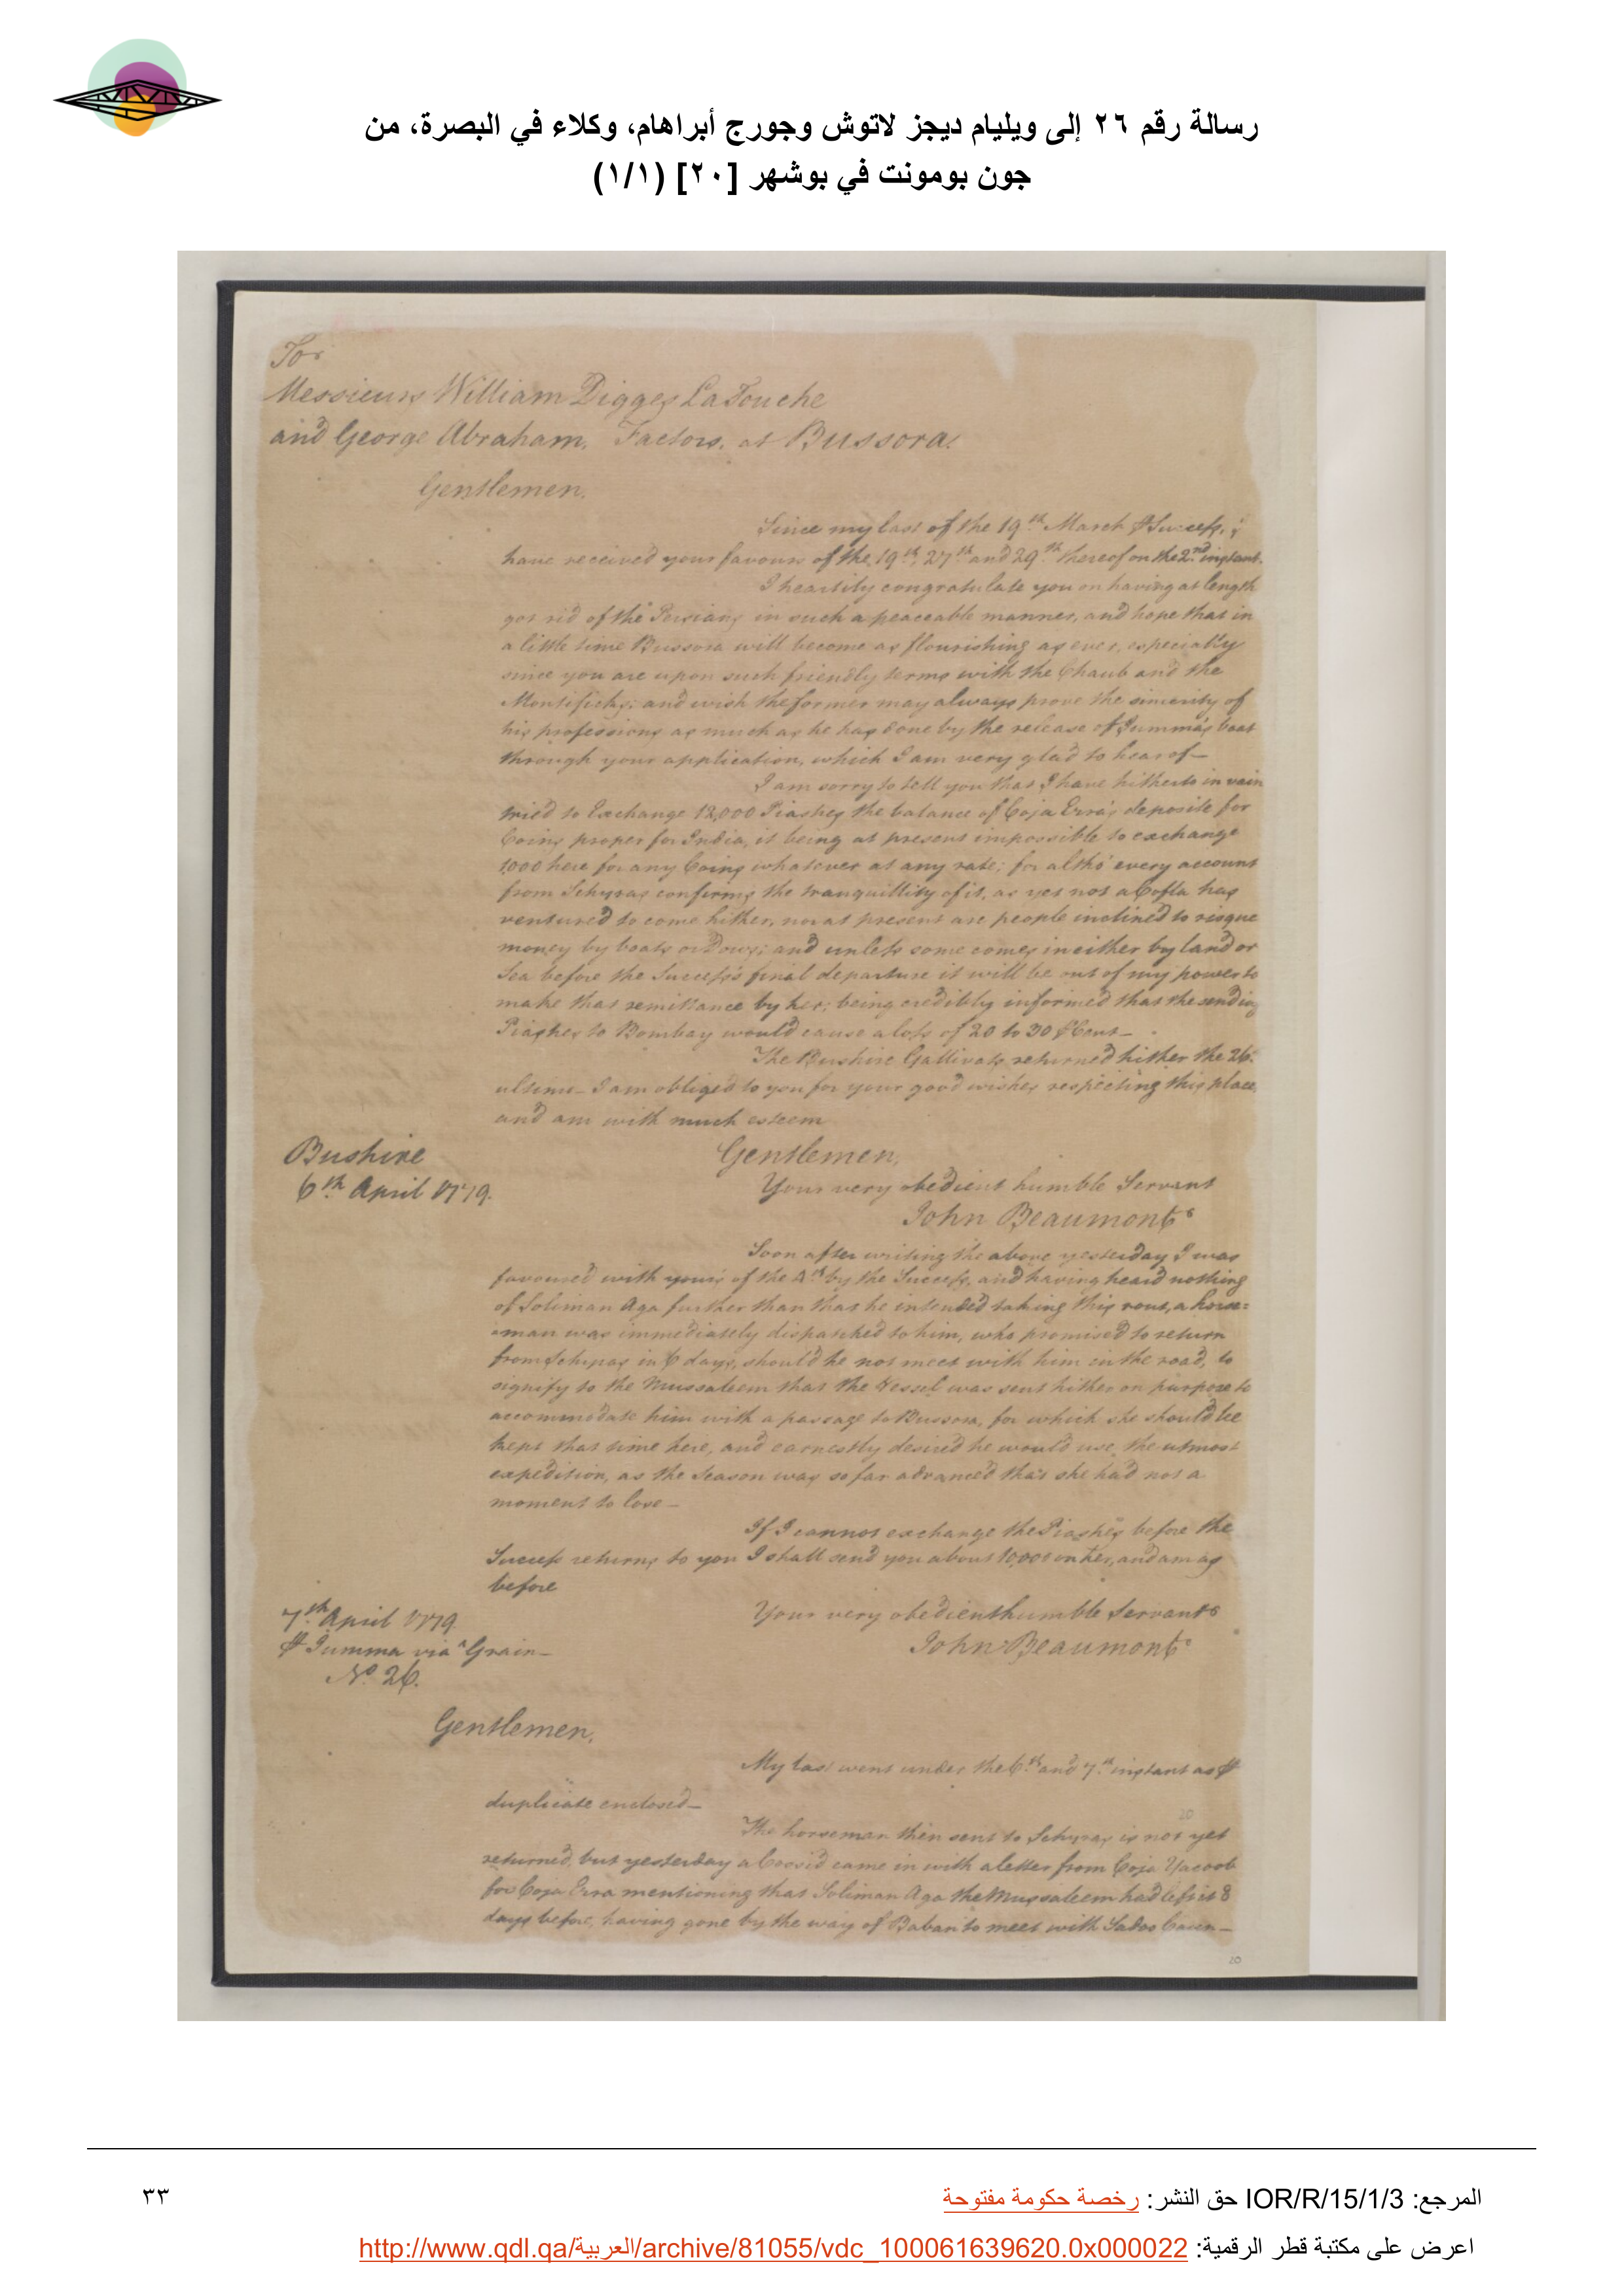 رسالة رقم ٢٦ إلى ويليام ديجز لاتوش وجورج أبراهام، وكلاء في البصرة، من
جون بومونت في بوشهر [٢٠] (١/١)
To
Messieurs William Digges LaTouche
and George Abraham. Factors. at Bussora.
Gentlemen.
Since my last of the 19th. March ⅌ Success, I
have received your favours of the 19th. 27th and 29th thereof on the 2nd. instant.
I heartily congratulate you on having at length
got rid of the Persians in such a peaceable manner, and hope that in
a little time Bussora will become as flourishing as ever, especially
since you are upon such friendly terms with the Chaub and the
Montifichs; and wish the former may always prove the sincerity of
his professions as much as he has done by the release of Jumma's boat
through your application, which I am very glad to hear of—
I am sorry to tell you that I have hitherto in vain
tried to Exchange 12,000 Piastres the balance of Coja Erra's deposite for
Coins proper for India, it being at present impossible to exchange
1,000 here for any Coins whatever at any rate; for altho' every account
from Schyras confirms the tranquillity of it, as yet not a Cofla has
ventured to come hither, nor at present are people inclined to risque
money by boats or Dows; and unless some comes in either by land or
Sea before the Success's final departure it will be out of my power to
make that remittance by her; being credibly informed that the sending
Piastres to Bombay would cause a loss of 20 to 30 ⅌ Cent—
The Bushire Gallivats returned hither the 26.
ultimo— I am obliged to you for your good wishes respecting this place,
and am with much esteem
Gentlemen,
Bushire
6th. April 1779.
Your very obedient humble Servant
John Beaumont
Soon after writing the above yesterday I was
favoured with yours of the 4th by the Success, and having heard nothing
of Soliman Aga further than that he intended taking this rout, a horse=
=man was immediately dispatched to him, who promised to return
from Schyras in 6 days, should he not meet with him in the road, to
signify to the Mussaleem that the Vessel was sent hither on purpose to
accommodate him with a passage to Bussora, for which she should be
kept that time here, and earnestly desired he would use the utmost
expedition, as the Season was so far advanced that she had not a
moment to lose—
If I cannot exchange the Piastres before the
Success returns to you I shall send you about 10,000 on her, and am as
before
7th. April 1779.
Your very obedient humble Servant
⅌ Jumma via Grain—
John Beaumont
No. 26.
Gentlemen,
My last went under the 6th. and 7th. instant as ⅌
duplicate enclosed—
20
The horseman then sent to Schyras is not yet
returned, but yesterday a Cossid came in with a letter from Coja Yacoob
for Coja Erra mentioning that Soliman Aga the Mussaleem had left it 8
days before, having gone by the way of Baban to meet with Sadoo Caun—
20
المرجع: IOR/R/15/1/3 حق النشر: رخصة حكومة مفتوحة
٣٣
اعرض على مكتبة قطر الرقمية: http://www.qdl.qa/العربية/archive/81055/vdc_100061639620.0x000022